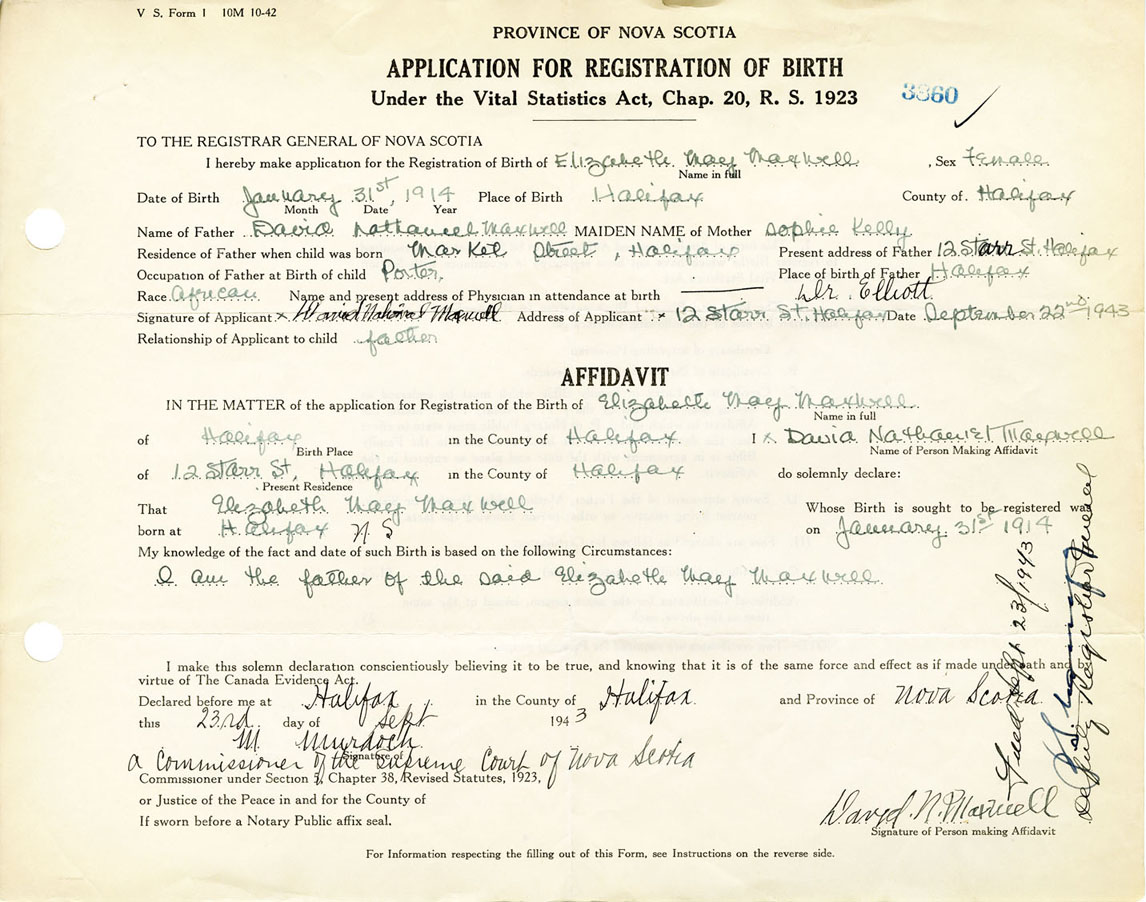 V S. Form 1 10M 10-42
PROVINCE OF NOVA SCOTIA
APPLICATION FOR REGISTRATION OF BIRTH
Under the Vital Statistics Act, Chap. 20, R. S. 1923
3860
TO THE REGISTRAR GENERAL OF NOVA SCOTIA
I hereby make application for the Registration of Birth of Elizabeth May Maxwell , Sex Female
Name in full
Date of Birth January 31st, 1914 Place of Birth Halifax County of Halifax
Month Date Year
Name of Father David Nathaniel Maxwell MAIDEN NAME of Mother Sophie Kelly
Residence of Father when child was born Market Street, Halifax Present address of Father 12 Starr St. Halifax
Occupation of Father at Birth of child Porter Place of birth of Father Halifax
Race African Name and present address of Physician in attendance at birth Dr. Elliott
Signature of Applicant x David Maxwell Address of Applicant x 12 Starr St. Halifax Date September 22nd 1943
Relationship of Applicant to child father
AFFIDAVIT
IN THE MATTER of the application for Registration of the Birth of Elizabeth May Maxwell
Name in full
of Halifax in the County of Halifax. I x David Nathaniel Maxwell
Birth Place Name of Person Making Affidavit
of 12 Starr St, Halifax in the County of Halifax do solemnly declare:
Present Residence
That Elizabeth May Maxwell Whose Birth is sought to be registered was
born at Halifax N S on January 31st 1914
My knowledge of the fact and date of such Birth is based on the following Circumstances:
I am the father of the said Elizabeth May Maxwell.
I make this solemn declaration conscientiously believing it to be true, and knowing that it is of the same force and effect as if made under oath and by
virtue of The Canada Evidence Act.
Declared before me at Halifax in the County of Halifax. and Province of Nova Scotia
this 23rd day of Sept 1943
M. Murdoch.
Signature of
a Commissioner of the Supreme Court of Nova Scotia
Commissioner under Section 5, Chapter 38, Revised Statutes, 1923,
or Justice of the Peace in and for the County of
If sworn before a Notary Public affix seal.
David N. Maxwell
Signature of Person making Affidavit
For Information respecting the filling out of this Form, see Instructions on the reverse side.
Filed Sept 23/1943
Deputy Registrar General